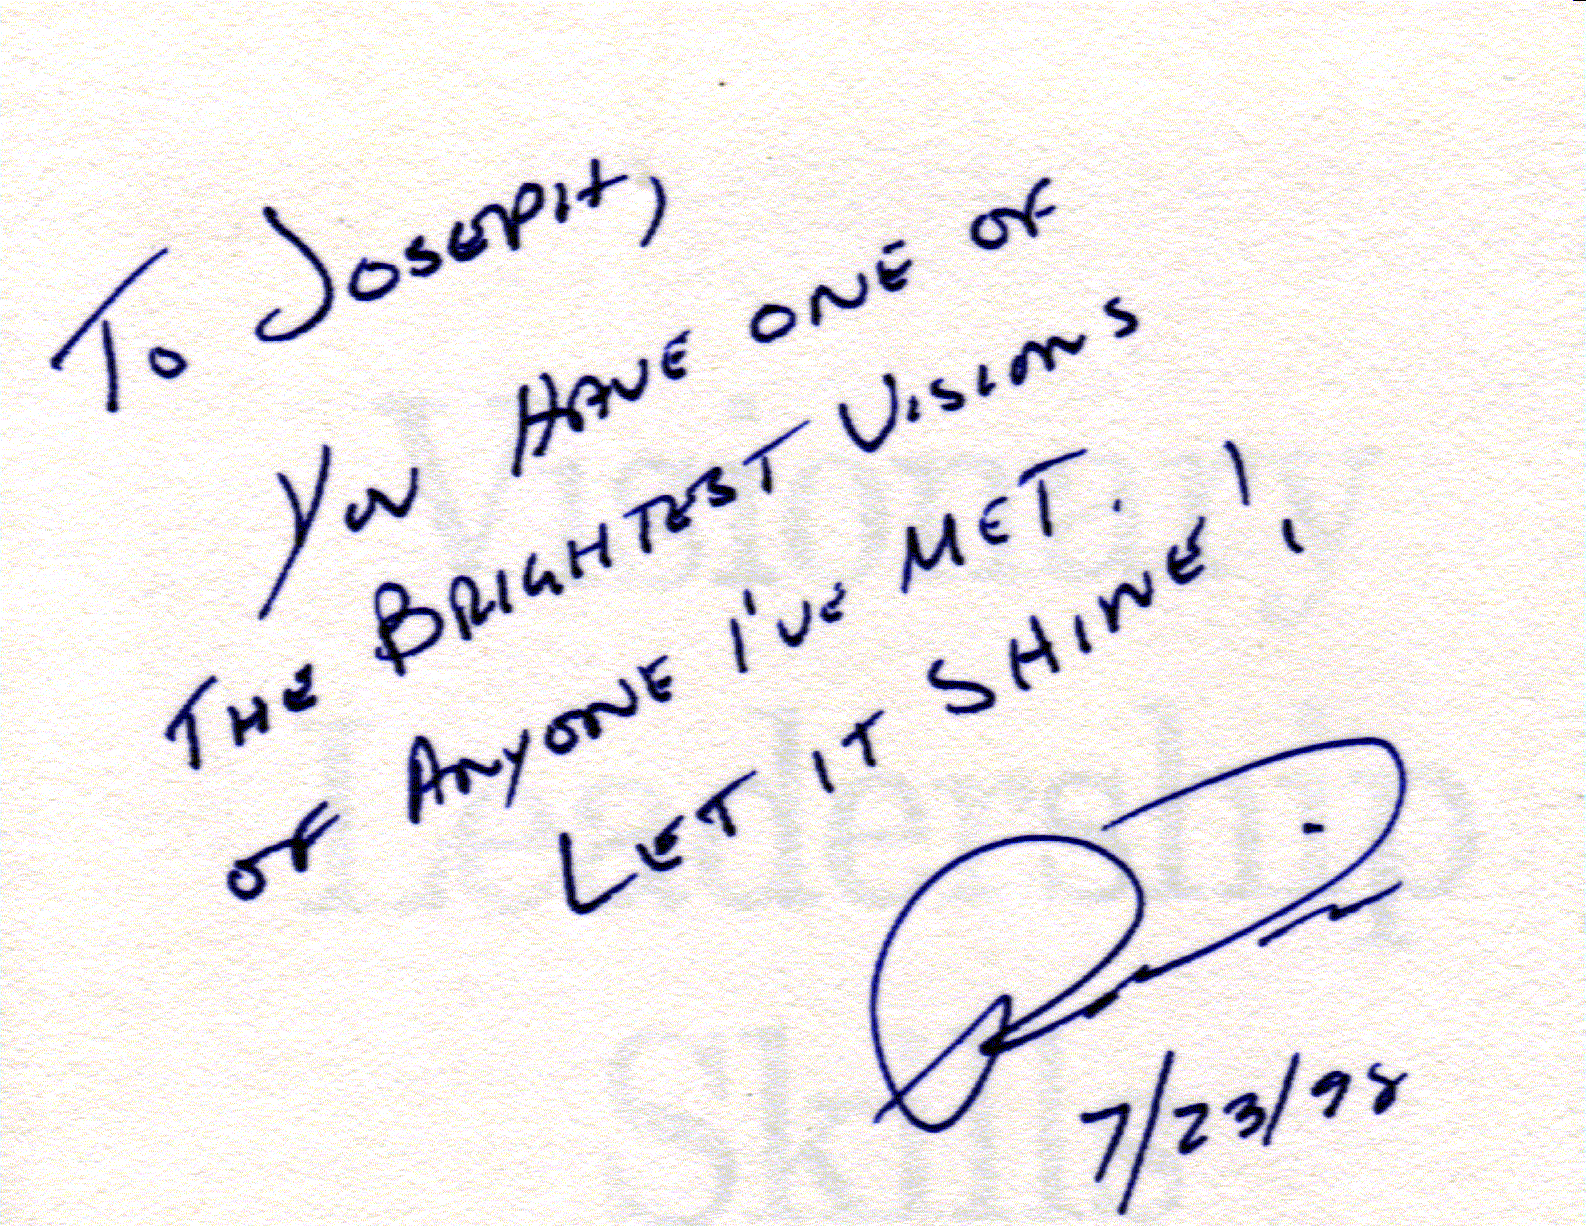 To JOSEPH,
YOU HAVE ONE OF
THE BRIGHTEST VISIONS
OF ANYONE I'VE MET.
LET IT SHINE!
7/23/98
Visionary
Leadership
Skills